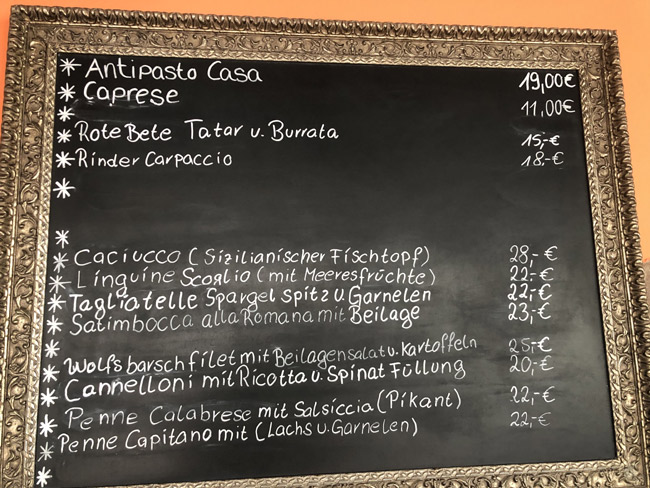 * Antipasto Casa 19,00€
* Caprese 11,00€
*
* Rote Bete Tatar u. Burrata 15,-€
* Rinder Carpaccio 18,-€
*
*
* Caciucco (Sizilianischer Fischtopf) 28,-€
* Linguine Scoglio (mit Meeresfrüchte) 22,-€
* Tagliatelle Spargel spitz u Garnelen 22,-€
* Satimbocca alla Romana mit Beilage 23,-€
*
* Wolfsbarschfilet mit Beilagensalat u. Kartoffeln 25,-€
* Cannelloni mit Ricotta u. Spinat Füllung 20,-€
* Penne Calabrese mit Salsiccia (Pikant) 22,-€
* Penne Capitano mit (Lachs u. Garnelen) 22,-€
*